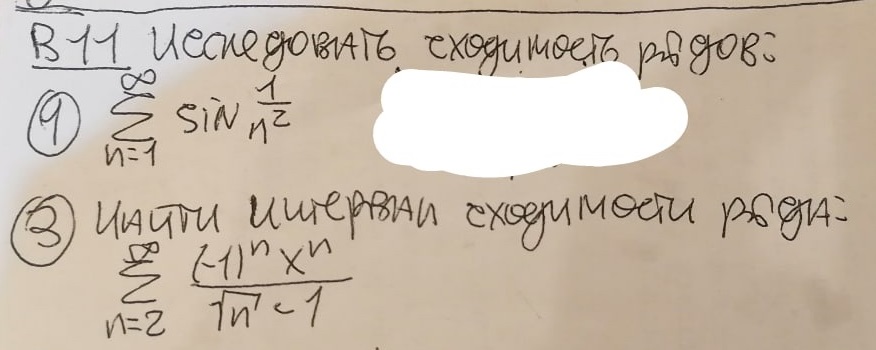 В11 Исследовать сходимость рядов:
① ∑_{n=1}^{∞} sin 1/n²
③ Найти интервал сходимости ряда:
∑_{n=2}^{∞} (-1)ⁿ xⁿ / (√n - 1)